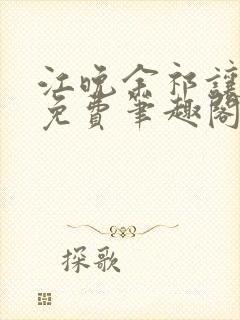 江晚余祁让
免费笔趣阁
探歌